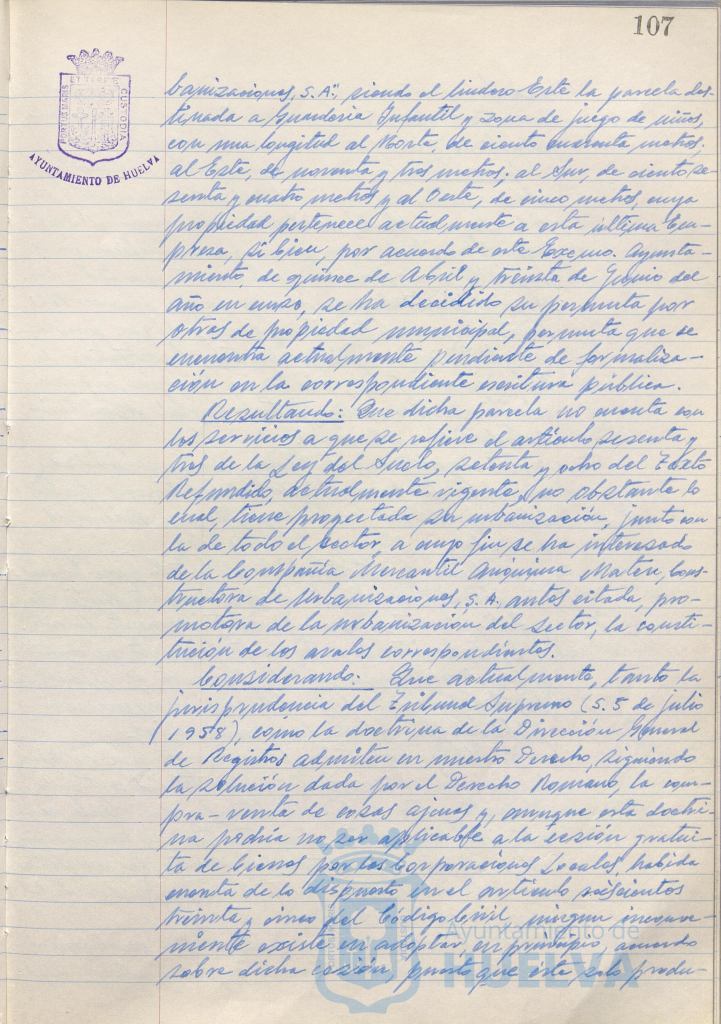 107
PORTUS MARIS
ET TERRE
CUSTODIA
AYUNTAMIENTO DE HUELVA
banizaciones, S.A", siendo el lindero Este la parcela des-
tinada a Guarderia Infantil y zona de juego de niños,
con una longitud al Norte, de ciento cuarenta metros.
al Este, de noventa y tres metros; al Sur, de ciento se-
senta y cuatro metros y al Oeste, de cinco metros, cuya
propiedad pertenece actualmente a esta última Em-
presa, si bien, por acuerdo de este Excmo. Ayunta-
miento, de quince de Abril y treinta de Junio del
año en curso, se ha decidido su permuta por
otras de propiedad municipal, permuta que se
encuentra actualmente pendiente de formaliza-
ción en la correspondiente escritura pública.
Resultando: Que dicha parcela no cuenta con
los servicios a que se refiere el artículo sesenta y
tres de la Ley del Suelo, setenta y ocho del Texto
Refundido, actualmente vigente, no obstante lo
cual, tiene proyectada su urbanización, junto con
la de todo el sector, a cuyo fin se ha interesado
de la Compañía Mercantil Mateu, Cons-
tructora de Urbanizaciones, S.A. antes citada, pro-
motora de la urbanización del Sector, la consti-
tución de los avales correspondientes.
Considerando: Que actualmente, tanto la
jurisprudencia del Tribunal Supremo (S. 5 de julio
1958), como la doctrina de la Dirección General
de Registros admiten en nuestro Derecho, siguiendo
la solución dada por el Derecho Romano, la com-
pra-venta de cosas ajenas y, aunque esta doctri-
na podría no ser aplicable a la cesión gratui-
ta de bienes por las Corporaciones Locales, habida
cuenta de lo dispuesto en el artículo seiscientos
treinta y cinco del Código Civil, ningun inconve-
niente existe en adoptar, en principio, acuerdo
sobre dicha cesión, puesto que éste solo produ-
Ayuntamiento de
HUELVA